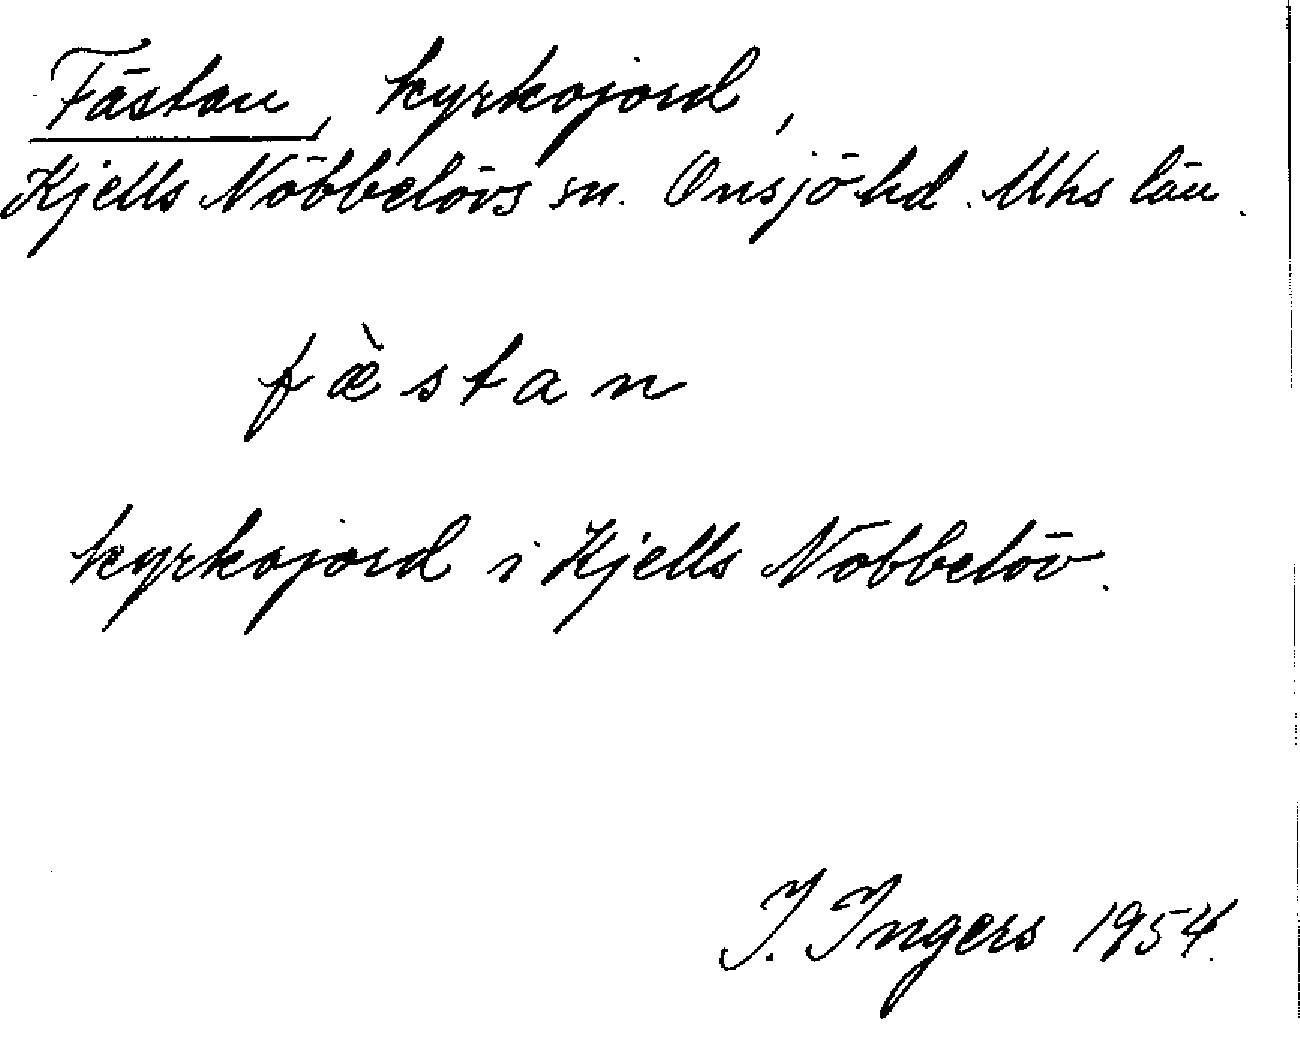 Fästan, kyrkojord,
Kjells Nöbbelövs sn. Onsjö hd. Mhs län.
fæ̀stan
kyrkojord i Kjells Nöbbelöv.
I. Ingers 1954.